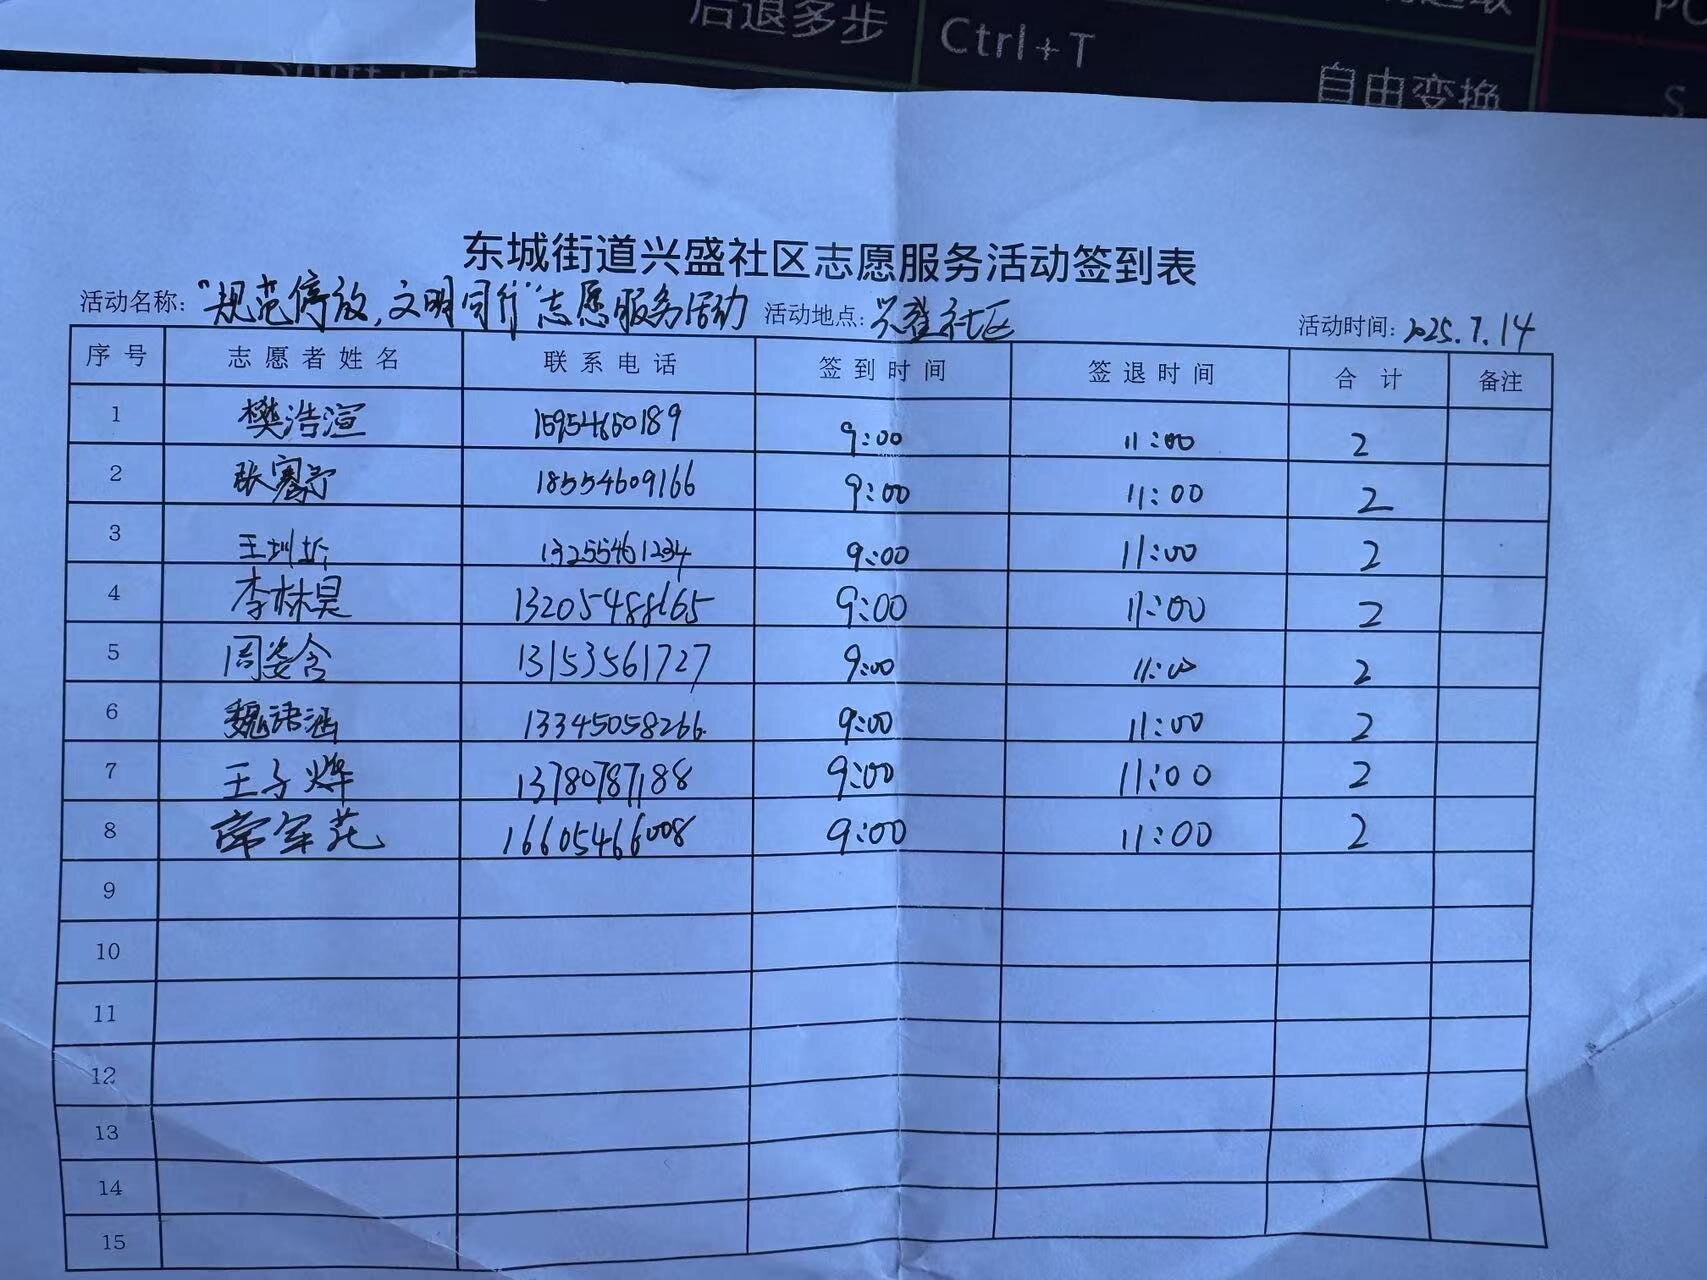 后退多步
Ctrl+T
自由变换
S
东城街道兴盛社区志愿服务活动签到表
活动名称: “规范停放,文明同行”志愿服务活动 活动地点: 兴盛社区 活动时间: 2025.7.14
序号 志愿者姓名 联系电话 签到时间 签退时间 合计 备注
1 樊浩渲 15954650189 9:00 11:00 2
2 张骞予 18554609166 9:00 11:00 2
3 13255461234 9:00 11:00 2
4 李林昊 13205488165 9:00 11:00 2
5 周姿含 13153561727 9:00 11:00 2
6 魏语涵 13345058266 9:00 11:00 2
7 王子烨 13780787188 9:00 11:00 2
8 16605466008 9:00 11:00 2
9
10
11
12
13
14
15